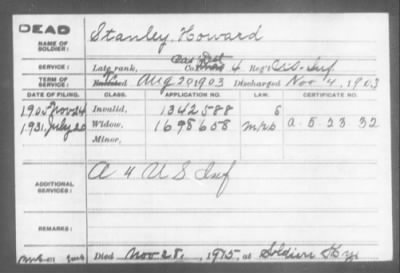 DEAD
NAME OF SOLDIER: Stanley, Howard
Cas Det
SERVICE: Late rank, Co. 4 Reg't U.S. Inf
TERM OF SERVICE: Enlisted Aug 20 1903 Discharged Nov 4, 1903
DATE OF FILING. CLASS. APPLICATION NO. LAW. CERTIFICATE NO.
1905 Nov 24 Invalid, 1342588
1931, July 20 Widow, 1698658 A-5-23-32
Minor,
ADDITIONAL SERVICES: A 4 U S Inf
REMARKS:
Died Nov 28, 1915, at Soldiers